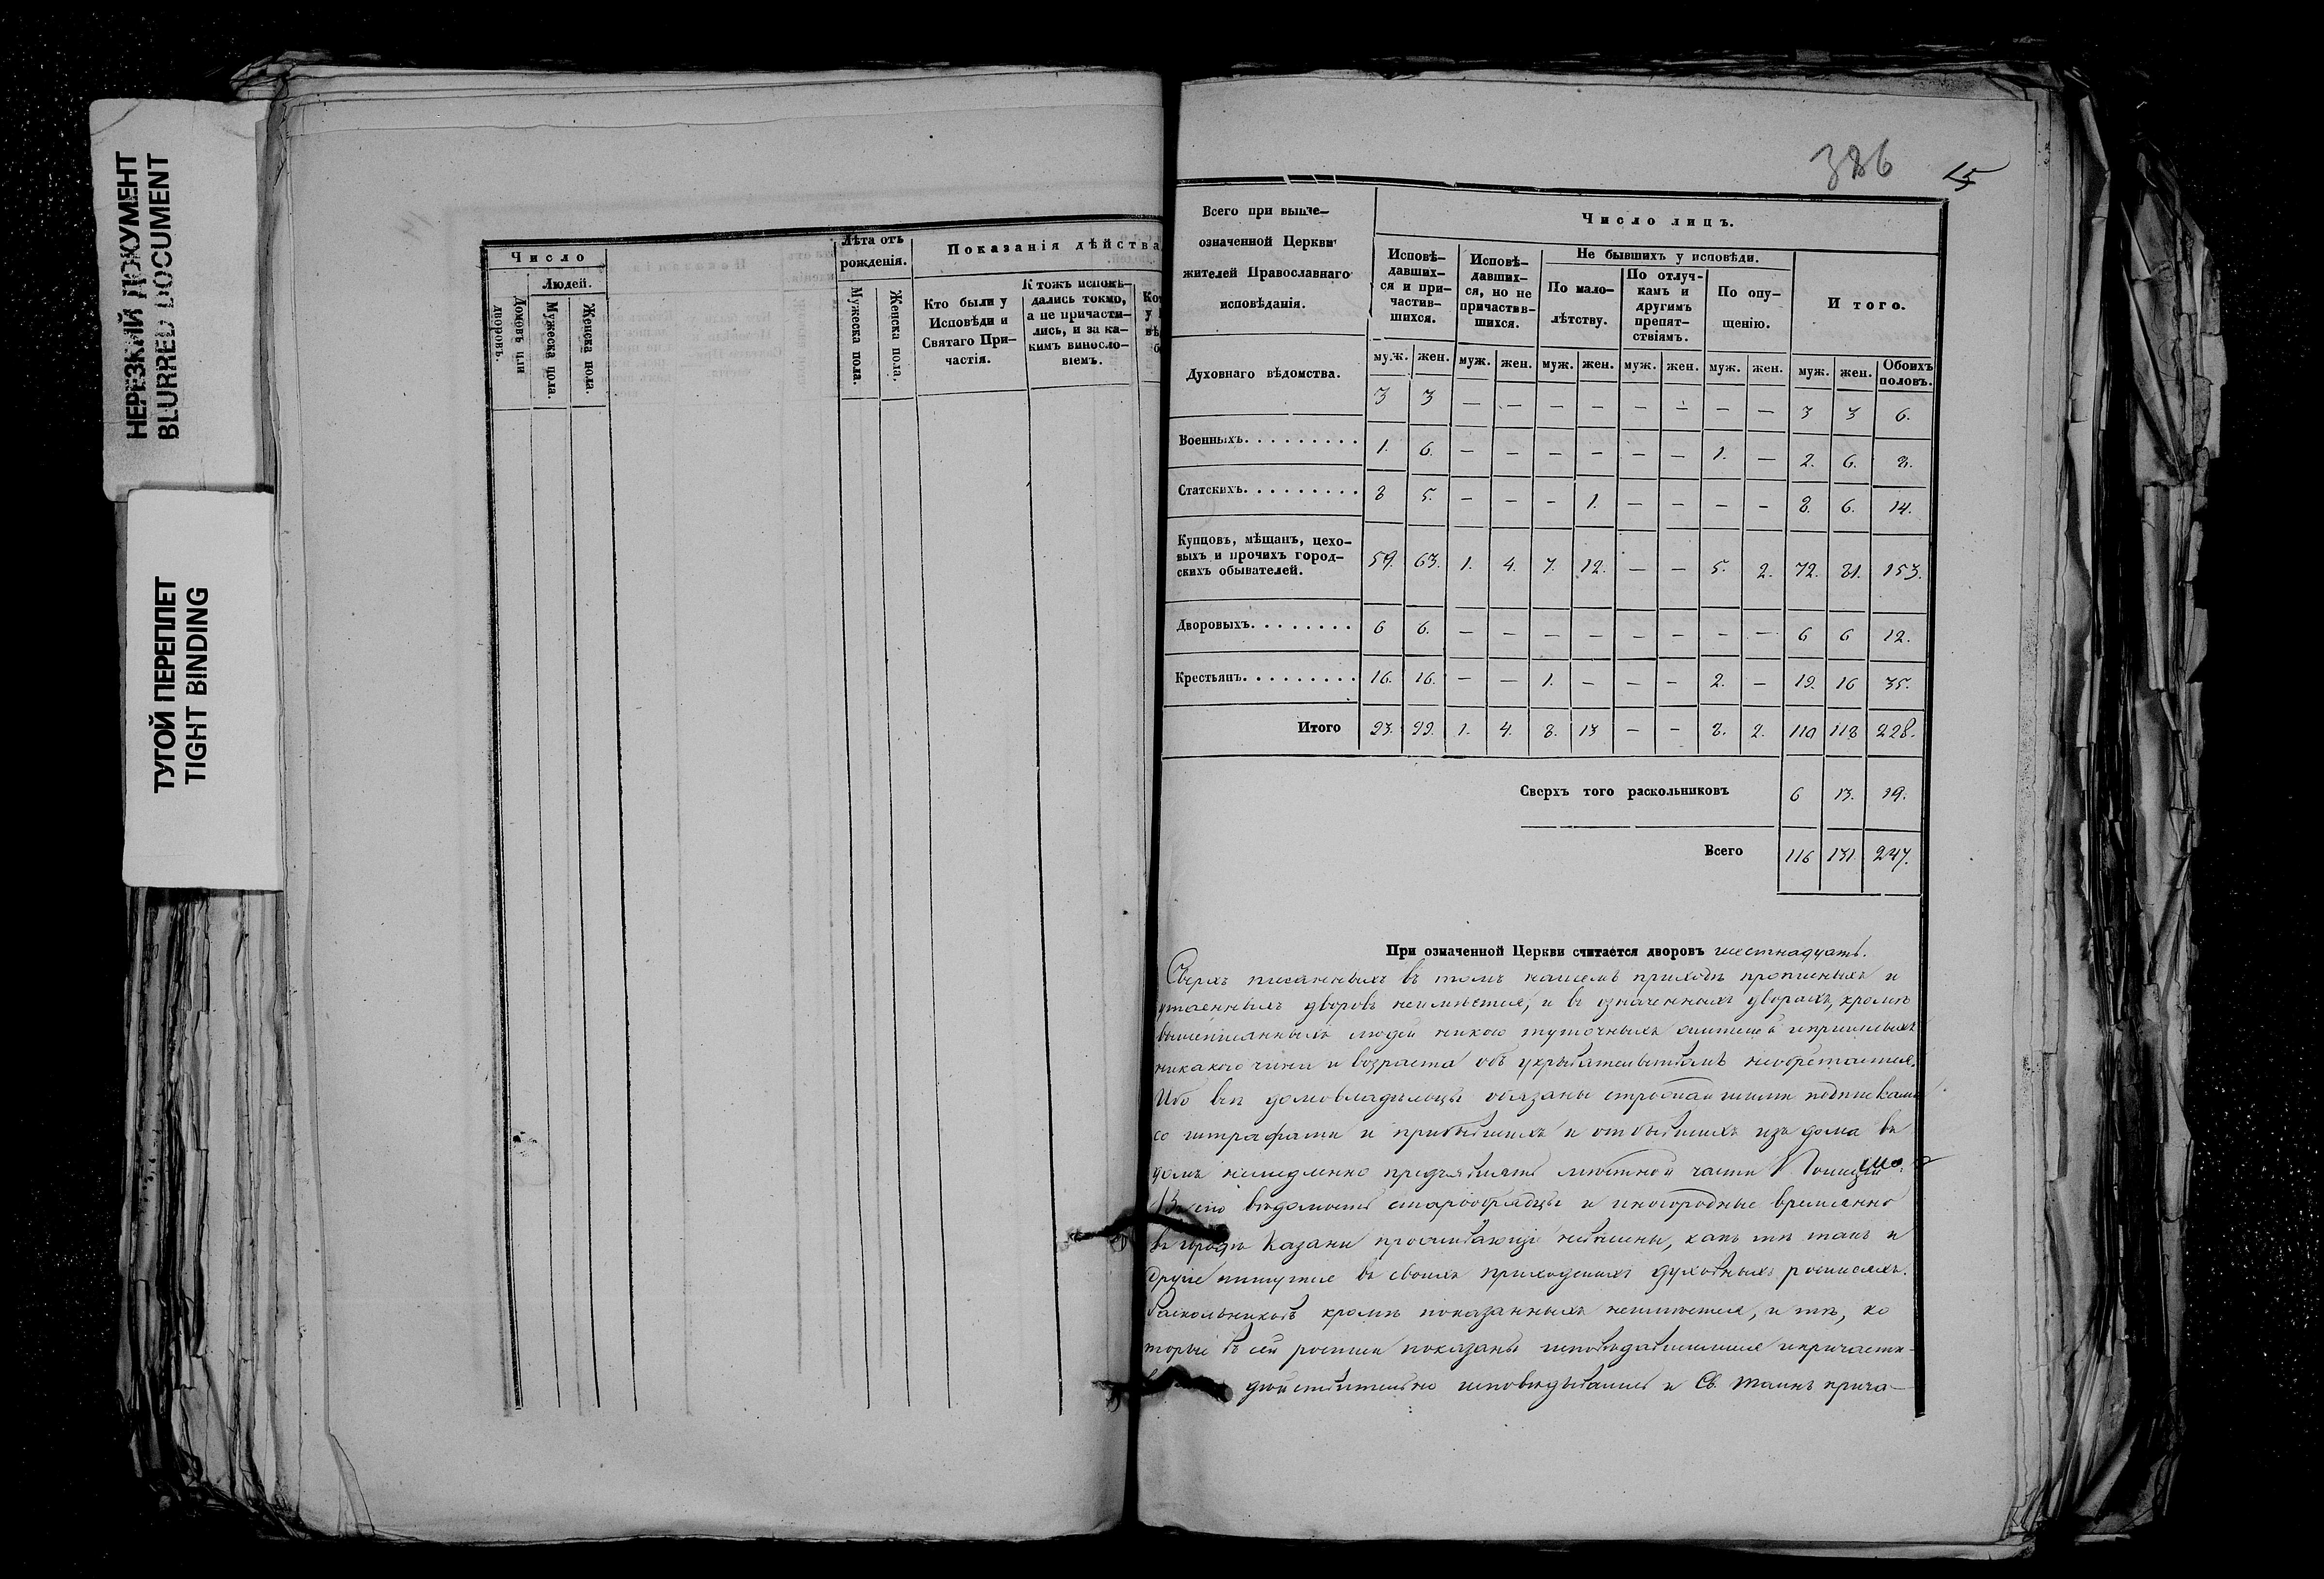 НЕРЕЗКИЙ ДОКУМЕНТ
BLURRED DOCUMENT
ТУГОЙ ПЕРЕПЛЕТ
TIGHT BINDING
Число
Домовъ или дворовъ.
Людей.
Мужеска пола.
Женска пола.
Лѣта отъ рожденія.
Мужеска пола.
Женска пола.
Показанія дѣйства
Кто были у
Исповѣди и
Святаго При-
частія.
Ктожъ исповѣ-
дались токмо,
а не причасти-
лись, и за ка-
кимъ виносло-
віемъ.
386 15
Всего при выше-
означенной Церкви
жителей Православнаго
исповѣданія.
Число лицъ.
Исповѣ-
давших-
ся и при-
частив-
шихся.
Исповѣ-
давших-
ся, но не
причастив-
шихся.
Не бывшихъ у исповѣди.
По мало-
лѣтству.
По отлуч-
камъ и
другимъ
препят-
ствіямъ.
По опу-
щенію.
Итого.
муж. жен. муж. жен. муж. жен. муж. жен. муж. жен. муж. жен. Обоихъ половъ.
Духовнаго вѣдомства. 3 3 — — — — — — — — 3 3 6.
Военныхъ. . . . . . . . . . 1. 6. — — — — — — 1. — 2. 6. 8.
Статскихъ. . . . . . . . . . 8 5. — — — 1. — — — — 8. 6. 14.
Купцовъ, мѣщанъ, цехо-
выхъ и прочихъ город-
скихъ обывателей. 59. 63. 1. 4. 7. 12. — — 5. 2. 72. 81. 153.
Дворовыхъ. . . . . . . . 6 6. — — — — — — — — 6 6 12.
Крестьянъ. . . . . . . . . 16. 16. — — 1. — — — 2. — 19. 16 35.
Итого 93. 99. 1. 4. 8. 13 — — 8. 2. 110 118 228.
Сверхъ того раскольниковъ 6 13. 19.
Всего 116 131 247.
При означенной Церкви считается дворовъ шестнадцать.
Сверхъ писанныхъ въ томъ нашемъ приходѣ прописныхъ и
утаенныхъ дворовъ неимѣется, и въ означенныхъ дворахъ, кромѣ
вышеписанныхъ людей никого туточныхъ жителей и пришлыхъ
никакого чина и возраста объ укрывательствамъ необретается.
Ибо всѣ домовладѣльцы обязаны строжайшими подписками
со штрафами и прибывшихъ и отбывшихъ изъ дома въ
домъ немедленно предъявлять мѣстной части Полиціи
Въ сію вѣдомость старообрядцы и иногородные временно
въ городѣ Казани проживающіе невнесены, какъ тѣ такъ и
другіе пишутся въ своихъ приходскихъ духовныхъ росписяхъ.
Раскольниковъ кромѣ показанныхъ неимѣется, и тѣ, ко
торые въ сей росписи показаны исповѣдавшимися и причасти-
дѣйствительно исповѣдывались и Св. Таинъ прича-